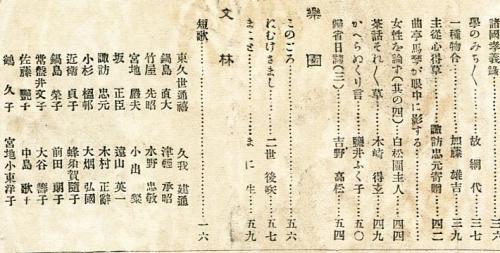 諸國孝義錄………三六
學のみち〳〵……故 綱代……
一種物合………加藤 雄吉…三九
主從心得草………諏訪忠元寄贈…四二
曲亭馬琴が眼中に影する
女性を論ず（其の四）…白松園主人…四四
茶話それ〳〵草………木崎 得玄…四九
かへらぬくり言………鹽井ふく子…五〇
歸省日誌（三）………吉野 高松…五四
樂園
このごろ………五六
にむけさまし………二世 後咲…五七
まこと………ま に 生…五九
文林
短歌………一六
東久世通禧 久我 建通
鍋島 直大 津輕 承昭
竹屋 光昭 水野 忠敬
宮地 嚴夫 小出 粲
坂 正臣 遠山 英一
諏訪 忠元 木村 正辭
小杉 榲邨 大畑 弘國
近衞 貞子 蜂須賀隨子
鍋島 榮子 前田 朗子
常磐井文子 大谷 籌子
佐藤 艷子 中島 歌子
鶴 久子 宮地ト東洋子